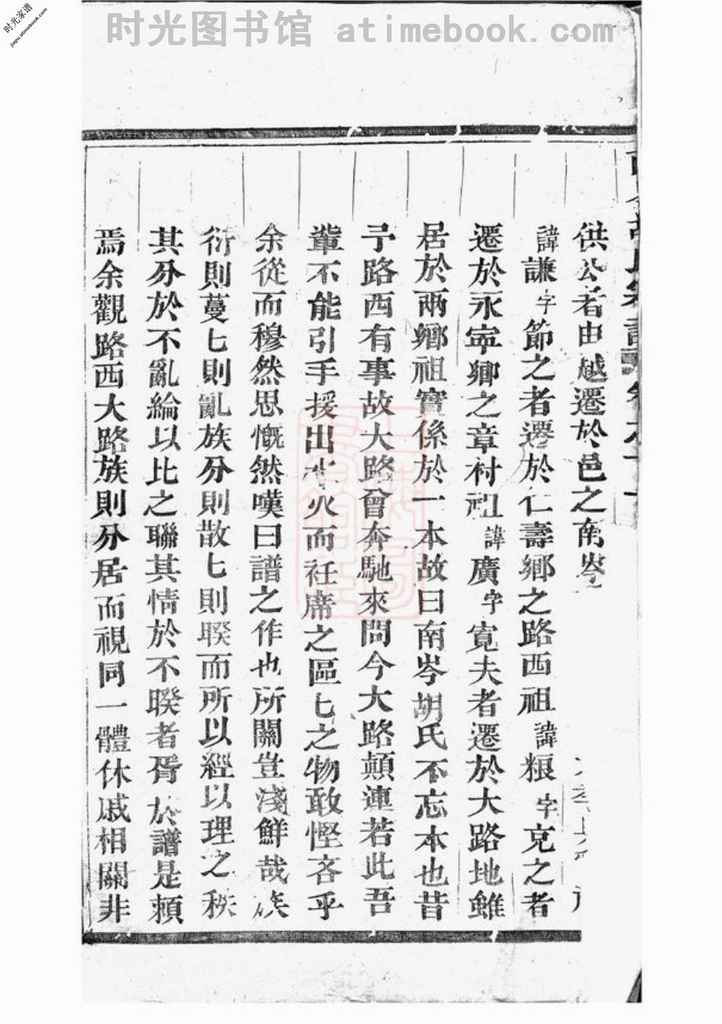 时光图书馆 atimebook.com
时光家谱
jiapu.atimebook.com
供公者由越遷於邑之南岑
諱謙字節之者遷於仁壽鄉之路西祖諱粮字克之者
遷於永寧卿之章村祖諱廣字寬夫者遷於大路地雖
居於兩鄉祖實係於一本故曰南岑胡氏不忘本也昔
于路西有事故大路曾奔馳來問今大路顛連若此吾
輩不能引手援出水火而衽席之區匕之物敢慳吝乎
余從而穆然思慨然嘆曰譜之作也所關豈淺鮮哉族
衍則蔓匕則亂族分則散匕則睽而所以經以理之秩
其分於不亂綸以比之聯其情於不睽者胥於譜是頼
焉余觀路西大路族則分居而視同一體休戚相關非